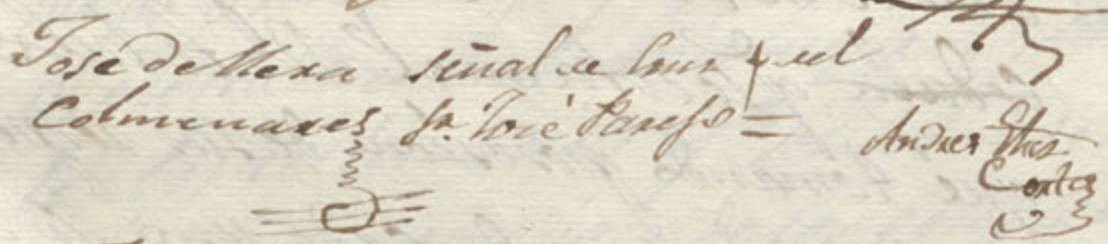 Jose de Mexa señal de Cruz + del
Colmenares Sr. José Parejo =
Andres
Cortes